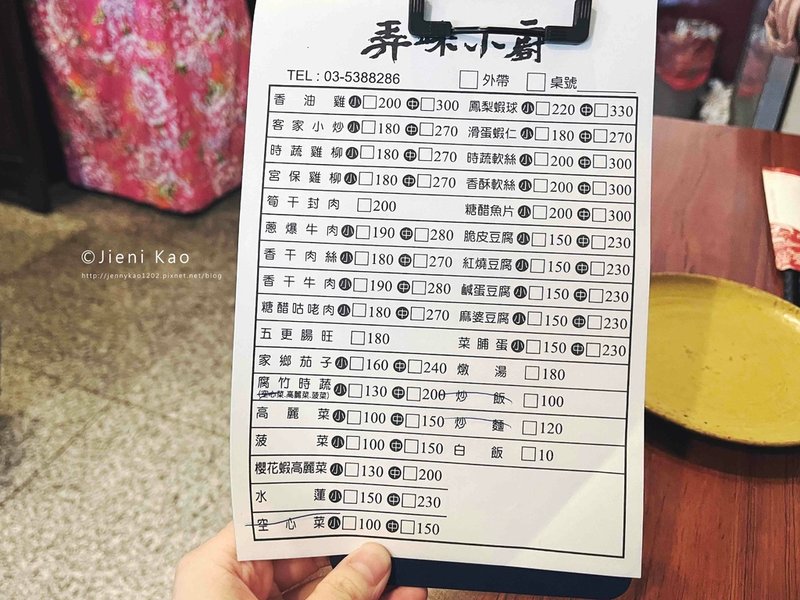 弄味小廚
TEL : 03-5388286 □外帶 □桌號
香油雞 小□200 中□300 鳳梨蝦球 小□220 中□330
客家小炒 小□180 中□270 滑蛋蝦仁 小□180 中□270
時蔬雞柳 小□180 中□270 時蔬軟絲 小□200 中□300
宮保雞柳 小□180 中□270 香酥軟絲 小□200 中□300
筍干封肉 □200 糖醋魚片 小□200 中□300
蔥爆牛肉 小□190 中□280 脆皮豆腐 小□150 中□230
香干肉絲 小□180 中□270 紅燒豆腐 小□150 中□230
香干牛肉 小□190 中□280 鹹蛋豆腐 小□150 中□230
糖醋咕咾肉 小□180 中□270 麻婆豆腐 小□150 中□230
五更腸旺 □180 菜脯蛋 小□150 中□230
家鄉茄子 小□160 中□240 燉湯 □180
腐竹時蔬 小□130 中□200 炒飯 □100
(空心菜.高麗菜.菠菜)
高麗菜 小□100 中□150 炒麵 □120
菠菜 小□100 中□150 白飯 □10
櫻花蝦高麗菜 小□130 中□200
水蓮 小□150 中□230
空心菜 小□100 中□150
©Jieni Kao
http://jennykao1202.pixnet.net/blog